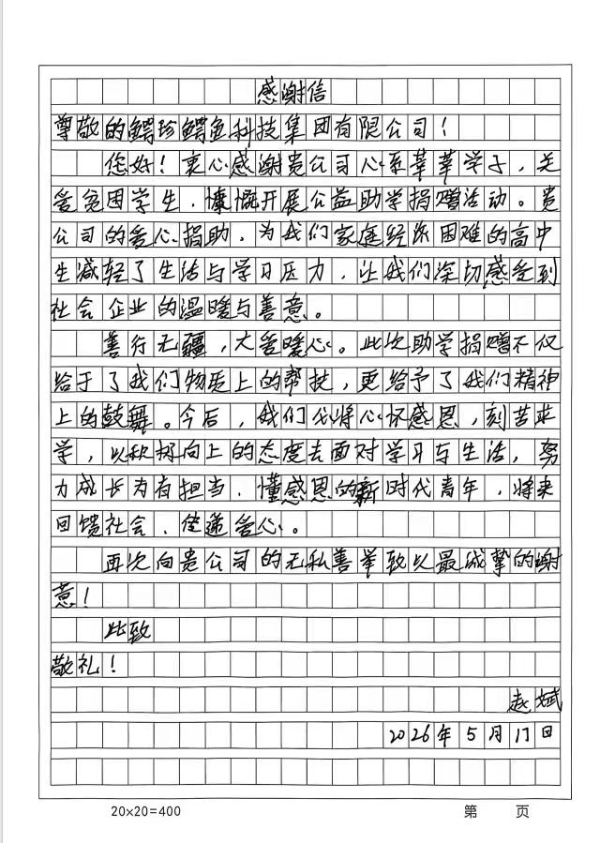 感谢信
尊敬的鳄珍鳄鱼科技集团有限公司！
您好！衷心感谢贵公司心系莘莘学子，关
爱贫困学生，慷慨开展公益助学捐赠活动。贵
公司的爱心捐助，为我们家庭经济困难的高中
生减轻了生活与学习压力，让我们深切感受到
社会企业的温暖与善意。
善行无疆，大爱暖心。此次助学捐赠不仅
给予了我们物质上的帮扶，更给予了我们精神
上的鼓舞。今后，我们必将心怀感恩，刻苦求
学，以积极向上的态度去面对学习与生活，努
力成长为有担当、懂感恩的新时代青年，将来
回馈社会、传递爱心。
再次向贵公司的无私善举致以最诚挚的谢
意！
此致
敬礼！
赵斌
2026年5月17日
20×20=400 第 页